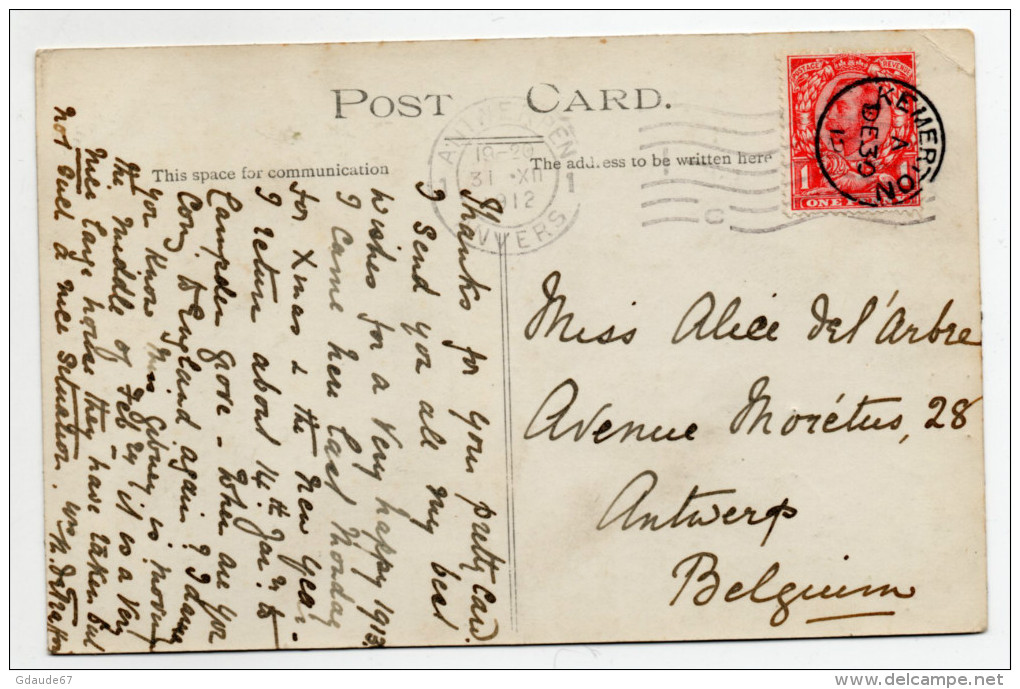 POST CARD.
This space for communication
The address to be written here
ANTWERPEN
1 1
19-20
31 XII
1912
ANVERS
POSTAGE REVENUE
1
ONE
KEMERTON
A
DE 30
Thanks for your pretty Card.
I send you all my best
wishes for a Very happy 1913
I came here last Monday
for Xmas & the New Year.
I return about 14th Jany to
Campden Grove - When are you
Comg to England again? I daresay
you know Miss Gibney is moving
the middle of Feby it is a Very
nice large house they have taken but
not such a nice situation.
Miss Alice Del'Arbre
Avenue Morétus, 28
Antwerp
Belgium
Gdaude67
delcampe.net